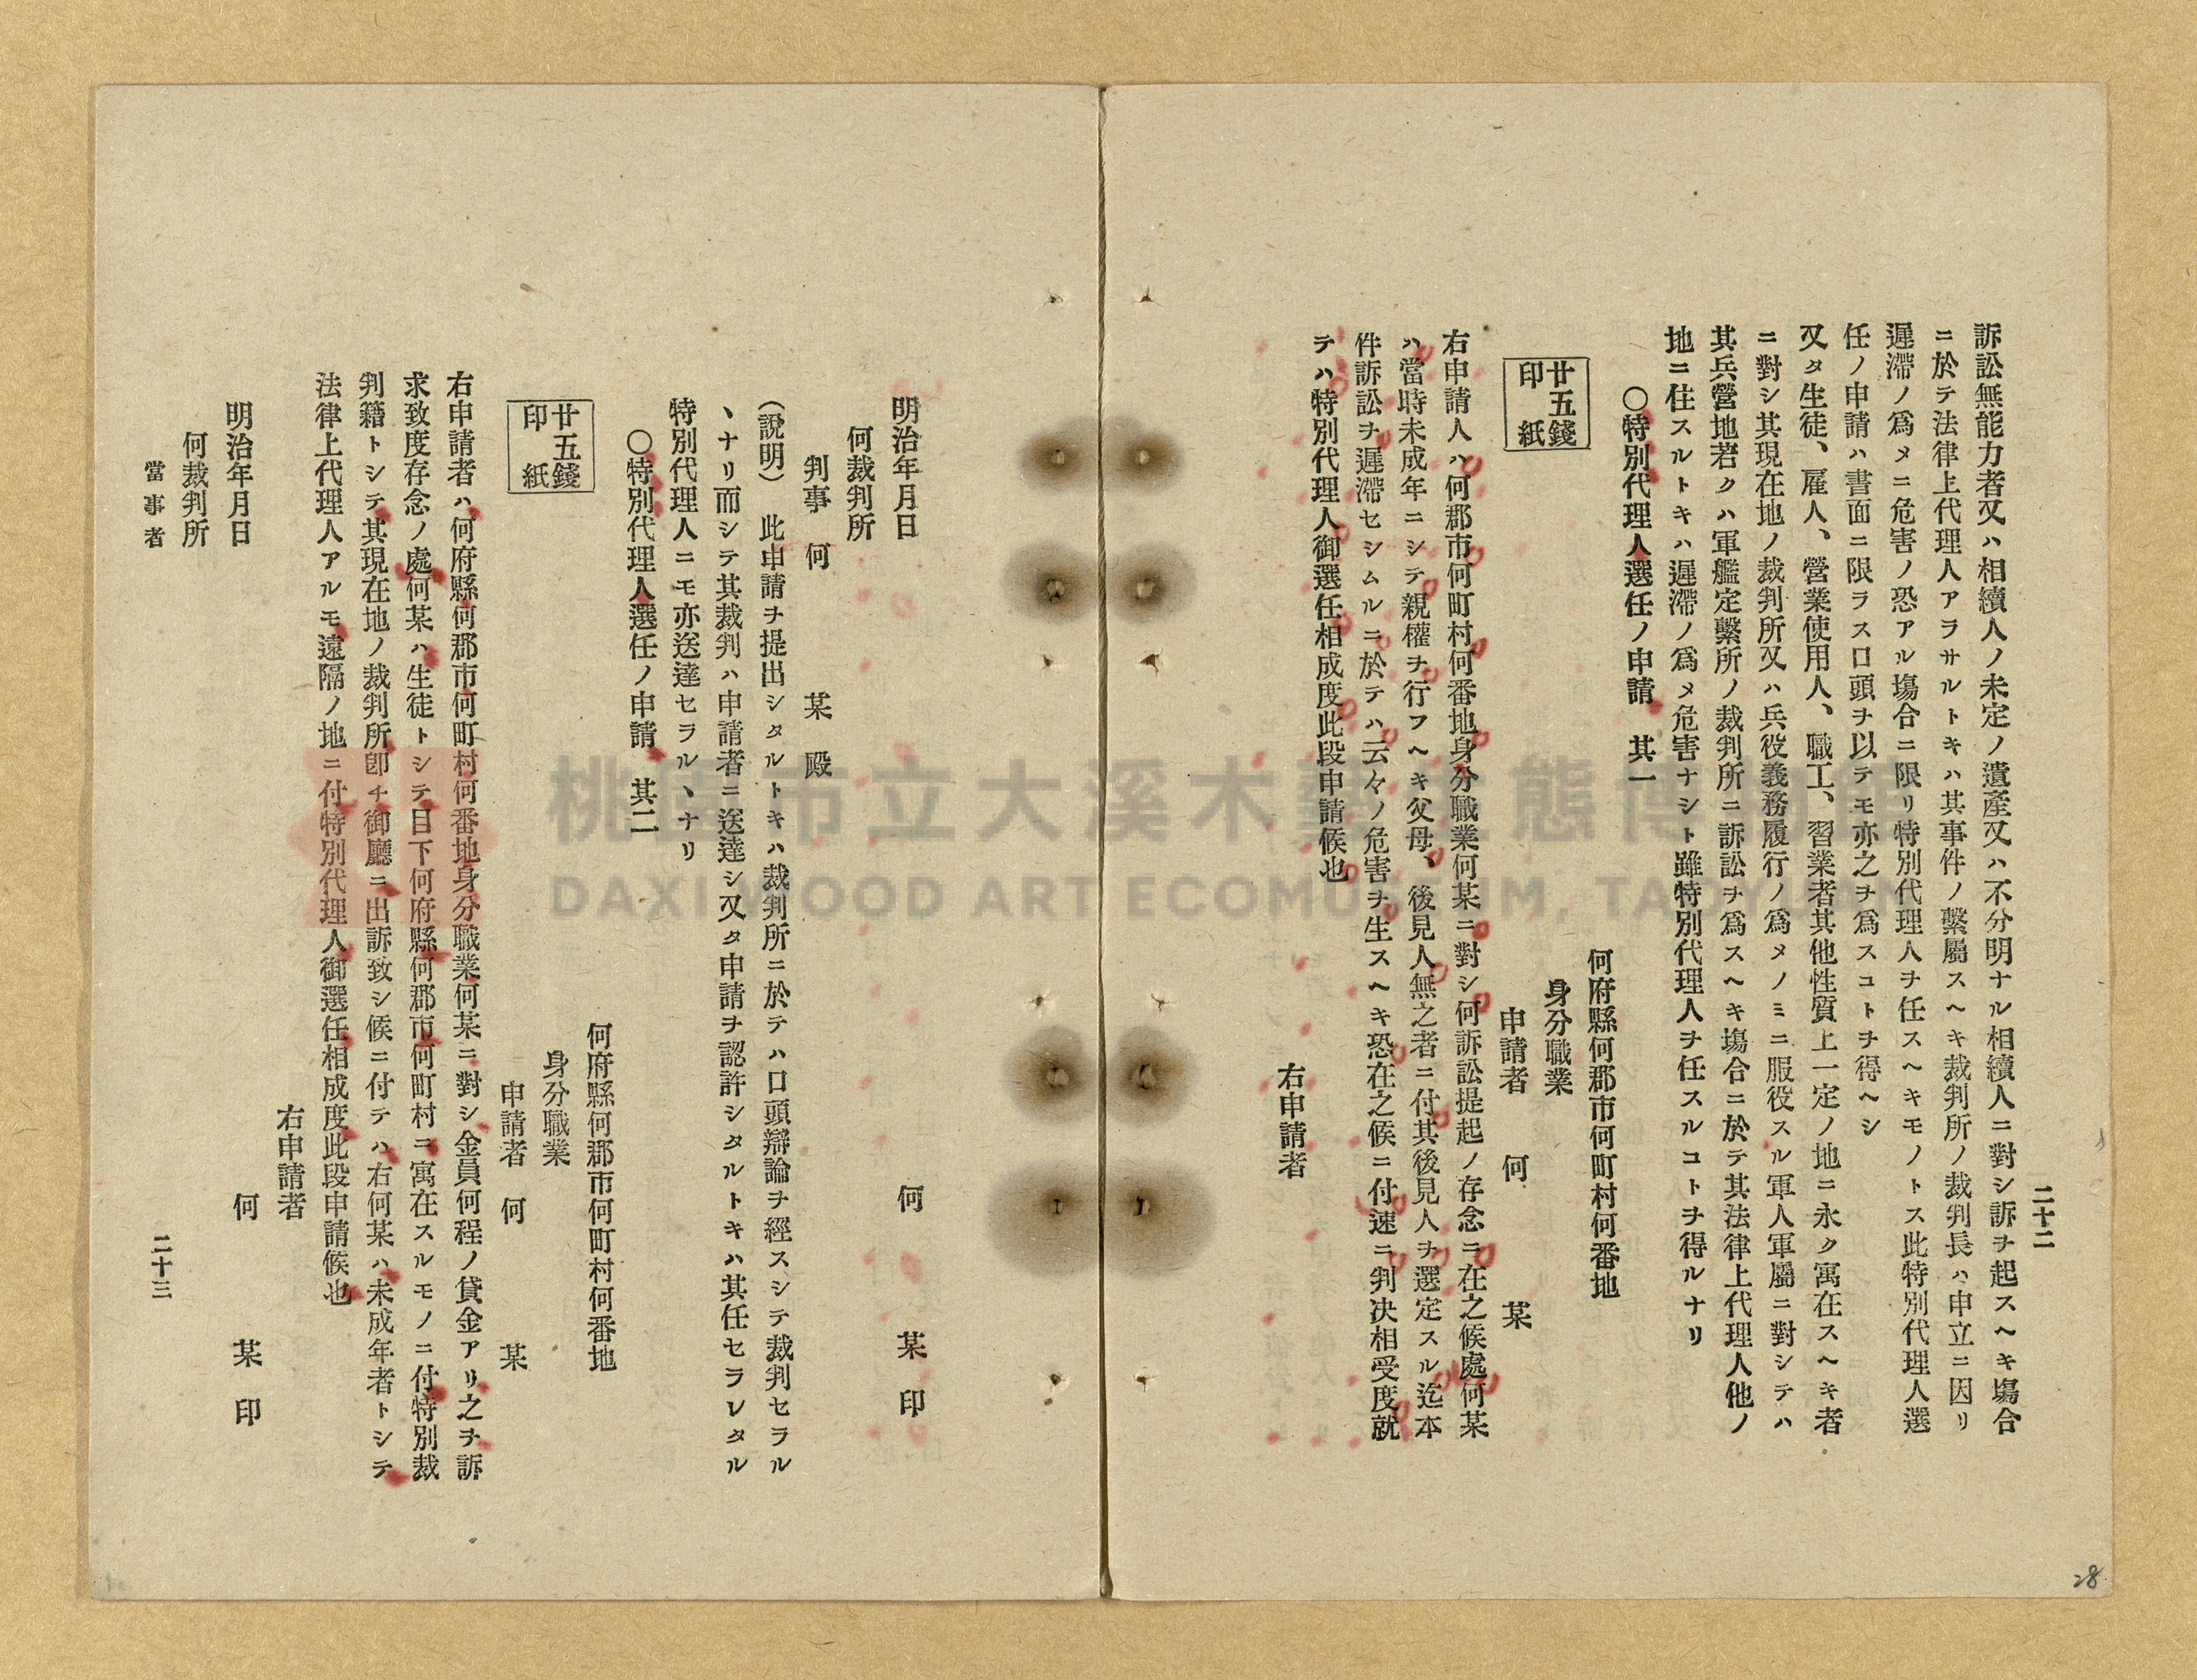 二十二
訴訟無能力者又ハ相續人ノ未定ノ遺產又ハ不分明ナル相續人ニ對シ訴ヲ起スヘキ塲合
ニ於テ法律上代理人アラサルトキハ其事件ノ繫屬スヘキ裁判所ノ裁判長ハ申立ニ因リ
遲滯ノ爲メニ危害ノ恐アル塲合ニ限リ特別代理人ヲ任スヘキモノトス此特別代理人選
任ノ申請ハ書面ニ限ラス口頭ヲ以テモ亦之ヲ爲スコトヲ得ヘシ
又タ生徒、雇人、營業使用人、職工、習業者其他性質上一定ノ地ニ永ク寓在スヘキ者
ニ對シ其現在地ノ裁判所又ハ兵役義務履行ノ爲メノミニ服役スル軍人軍屬ニ對シテハ
其兵營地若クハ軍艦定繫所ノ裁判所ニ訴訟ヲ爲スヘキ塲合ニ於テ其法律上代理人他ノ
地ニ住スルトキハ遲滯ノ爲メ危害ナシト雖特別代理人ヲ任スルコトヲ得ルナリ
○特別代理人選任ノ申請 其一
何府縣何郡市何町村何番地
身分職業
申請者 何 某
廿五錢
印 紙
右申請人ハ何郡市何町村何番地身分職業何某ニ對シ何訴訟提起ノ存念ニ在之候處何某
ハ當時未成年ニシテ親權ヲ行フヘキ父母、後見人無之者ニ付其後見人ヲ選定スル迄本
件訴訟ヲ遲滯セシムルニ於テハ云々ノ危害ヲ生スヘキ恐在之候ニ付速ニ判决相受度就
テハ特別代理人御選任相成度此段申請候也
右申請者
何 某 印
明治年月日
何裁判所
判事 何 某 殿
(說明) 此申請ヲ提出シタルトキハ裁判所ニ於テハ口頭辯論ヲ經スシテ裁判セラル
ヽナリ而シテ其裁判ハ申請者ニ送達シ又タ申請ヲ認許シタルトキハ其任セラレタル
特別代理人ニモ亦送達セラルヽナリ
○特別代理人選任ノ申請 其二
何府縣何郡市何町村何番地
身分職業
申請者 何 某
廿五錢
印 紙
右申請者ハ何府縣何郡市何町村何番地身分職業何某ニ對シ金員何程ノ貸金アリ之ヲ訴
求致度存念ノ處何某ハ生徒トシテ目下何府縣何郡市何町村ニ寓在スルモノニ付特別裁
判籍トシテ其現在地ノ裁判所卽チ御廳ニ出訴致シ候ニ付テハ右何某ハ未成年者トシテ
法律上代理人アルモ遠隔ノ地ニ付特別代理人御選任相成度此段申請候也
右申請者
何 某 印
明治年月日
何裁判所
當事者
二十三
28
桃園市立大溪木藝生態博物館
DAXI WOOD ART ECOMUSEUM, TAOYUAN